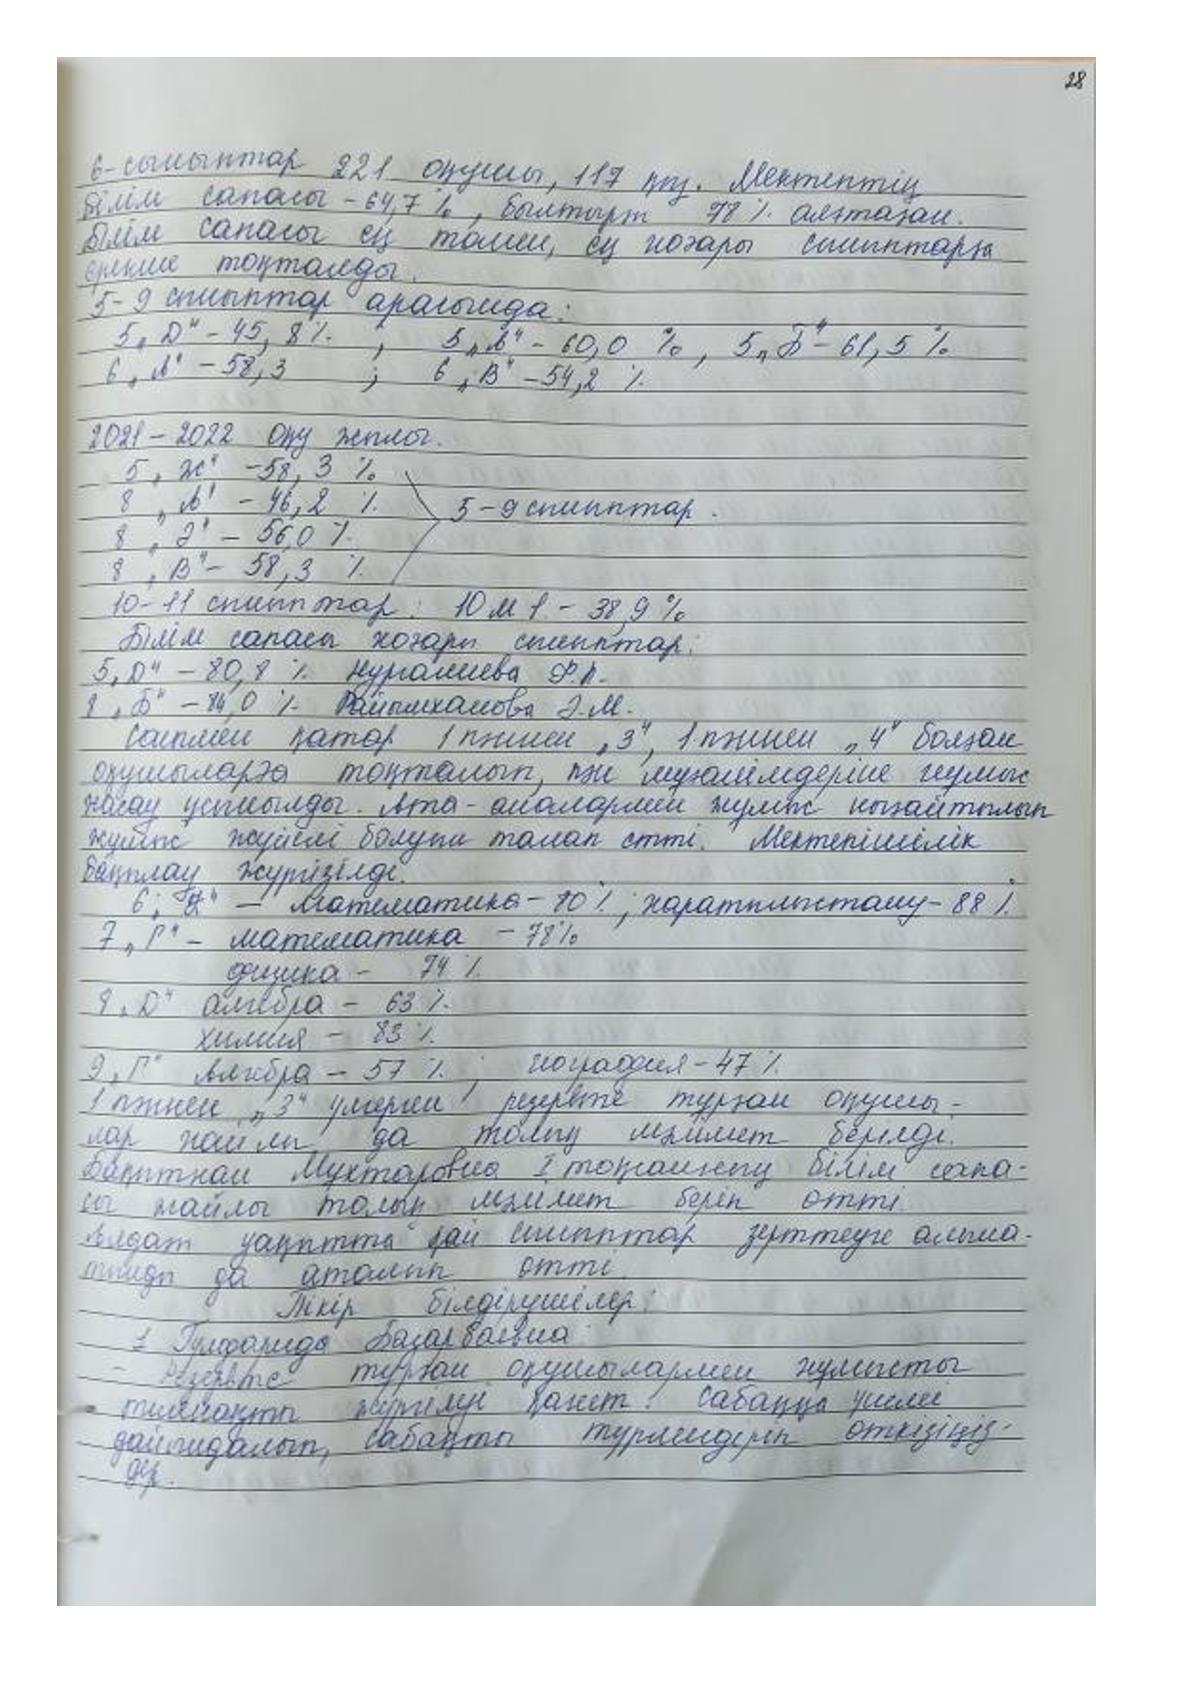 28
6-сыныптар 221 оқушы, 117 қыз. Мектептің
білім сапасы - 64,7 %, былтырғы 78 %
білім сапасы ең төмен, ең жоғары сыныптарға
ерекше тоқталды.
5-9 сыныптар арасында:
5 „Д" - 45,8 % ; 5 „А" - 60,0 %, 5 „Б" - 61,5 %
6 „А" - 58,3 ; 6 „В" - 54,2 %
2021-2022 оқу жылы.
5 „Ж" - 58,3 %
8 „А" - 46,2 % 5-9 сыныптар.
8 „Ә" - 56,0 %
8 „В" - 58,3 %
10-11 сыныптар: 10 М 1 - 38,9 %
Білім сапасы жоғары сыныптар:
5 „Д" - 80,8 % Нургалиева Ф.Қ.
8 „Б" - 84,0 % Райымханова Э.М.
Сонымен қатар 1 пәннен „3", 1 пәннен „4" болған
оқушыларға тоқталып, пән мұғалімдеріне жұмыс
жасау ұсынылды. Ата-аналармен жұмыс нығайтылып
жұмыс жүйелі болуын талап етті. Мектепішілік
бақылау жүргізілді.
6 - Математика - 80 %; жаратылыстану - 88 %
7 „Г" - математика - 78 %
физика - 74 %
8 „Д" алгебра - 63 %
химия - 83 %
9 „Г" Алгебра - 57 % ; география - 47 %
1 пәннен „3" үлгерген резервте тұрған оқушы-
лар жайлы да толық мәлімет берілді.
Бақытнап Мухтаровна I тоқсанның білім сапа-
сы жайлы толық мәлімет беріп өтті.
Алдағы уақытта қай сыныптар зерттеуге алына-
тынды да аталып өтті.
Пікір білдірушілер:
1 Гулфарида Базарбаевна:
- Резервте тұрған оқушылармен жұмысты
тиянақты жүргізуі қажет. Сабаққа үнемі
дайындалып, сабақты түрлендіріп өткізіңіз-
дер.